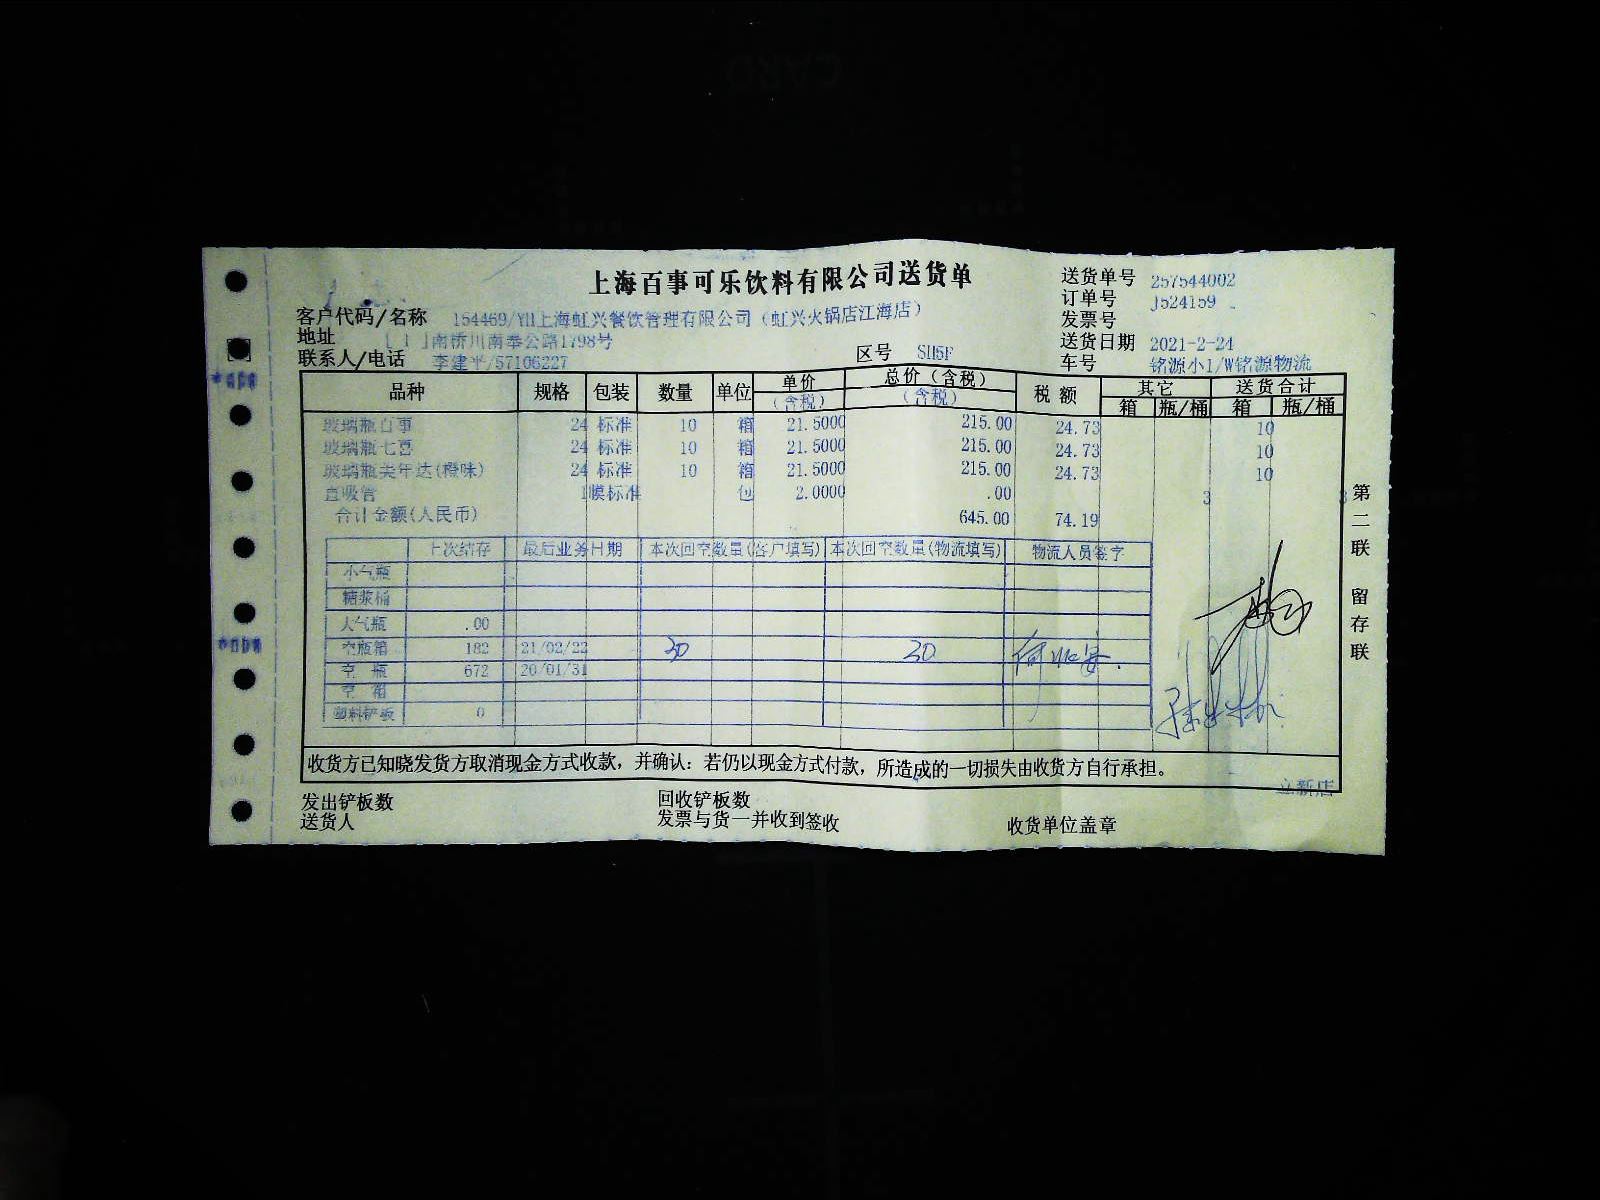 上海百事可乐饮料有限公司送货单
送货单号 257544002
订单号 J524159
发票号
送货日期 2021-2-24
车号 铭源小1/W铭源物流
客户代码/名称 154469/YH上海虹兴餐饮管理有限公司（虹兴火锅店江海店）
地址 [ ]南桥川南奉公路1798号
联系人/电话 李建平/57106227
区号 SH5F
品种 规格 包装 数量 单位 单价（含税） 总价（含税）（含税） 税额 其它 箱 瓶/桶 送货合计 箱 瓶/桶
玻璃瓶百事 24 标准 10 箱 21.5000 215.00 24.73 10
玻璃瓶七喜 24 标准 10 箱 21.5000 215.00 24.73 10
玻璃瓶美年达(橙味) 24 标准 10 箱 21.5000 215.00 24.73 10
直吸管 1 膜标准 包 2.0000 .00 3 3
合计金额(人民币) 645.00 74.19
上次结存 最后业务日期 本次回空数量(客户填写) 本次回空数量(物流填写) 物流人员签字
小气瓶
糖浆桶
大气瓶 .00
空瓶箱 182 21/02/22 30 30
空 瓶 672 20/01/31
空 箱
塑料铲板 0
第二联 留存联
收货方已知晓发货方取消现金方式收款，并确认：若仍以现金方式付款，所造成的一切损失由收货方自行承担。
立新店
发出铲板数 回收铲板数
送货人 发票与货一并收到签收 收货单位盖章